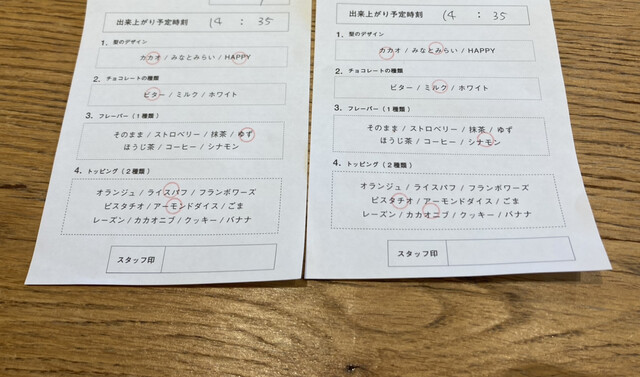 出来上がり予定時刻 14 : 35
1. 髪のデザイン
カカオ / みなとみらい / HAPPY
2. チョコレートの種類
ビター / ミルク / ホワイト
3. フレーバー ( 1 種類 )
そのまま / ストロベリー / 抹茶 / ゆず
ほうじ茶 / コーヒー / シナモン
4. トッピング ( 2 種類 )
オランジュ / ライスパフ / フランボワーズ
ピスタチオ / アーモンドダイス / ごま
レーズン / カカオニブ / クッキー / バナナ
スタッフ印
出来上がり予定時刻 14 : 35
1. 髪のデザイン
カカオ / みなとみらい / HAPPY
2. チョコレートの種類
ビター / ミルク / ホワイト
3. フレーバー ( 1 種類 )
そのまま / ストロベリー / 抹茶 / ゆず
ほうじ茶 / コーヒー / シナモン
4. トッピング ( 2 種類 )
オランジュ / ライスパフ / フランボワーズ
ピスタチオ / アーモンドダイス / ごま
レーズン / カカオニブ / クッキー / バナナ
スタッフ印